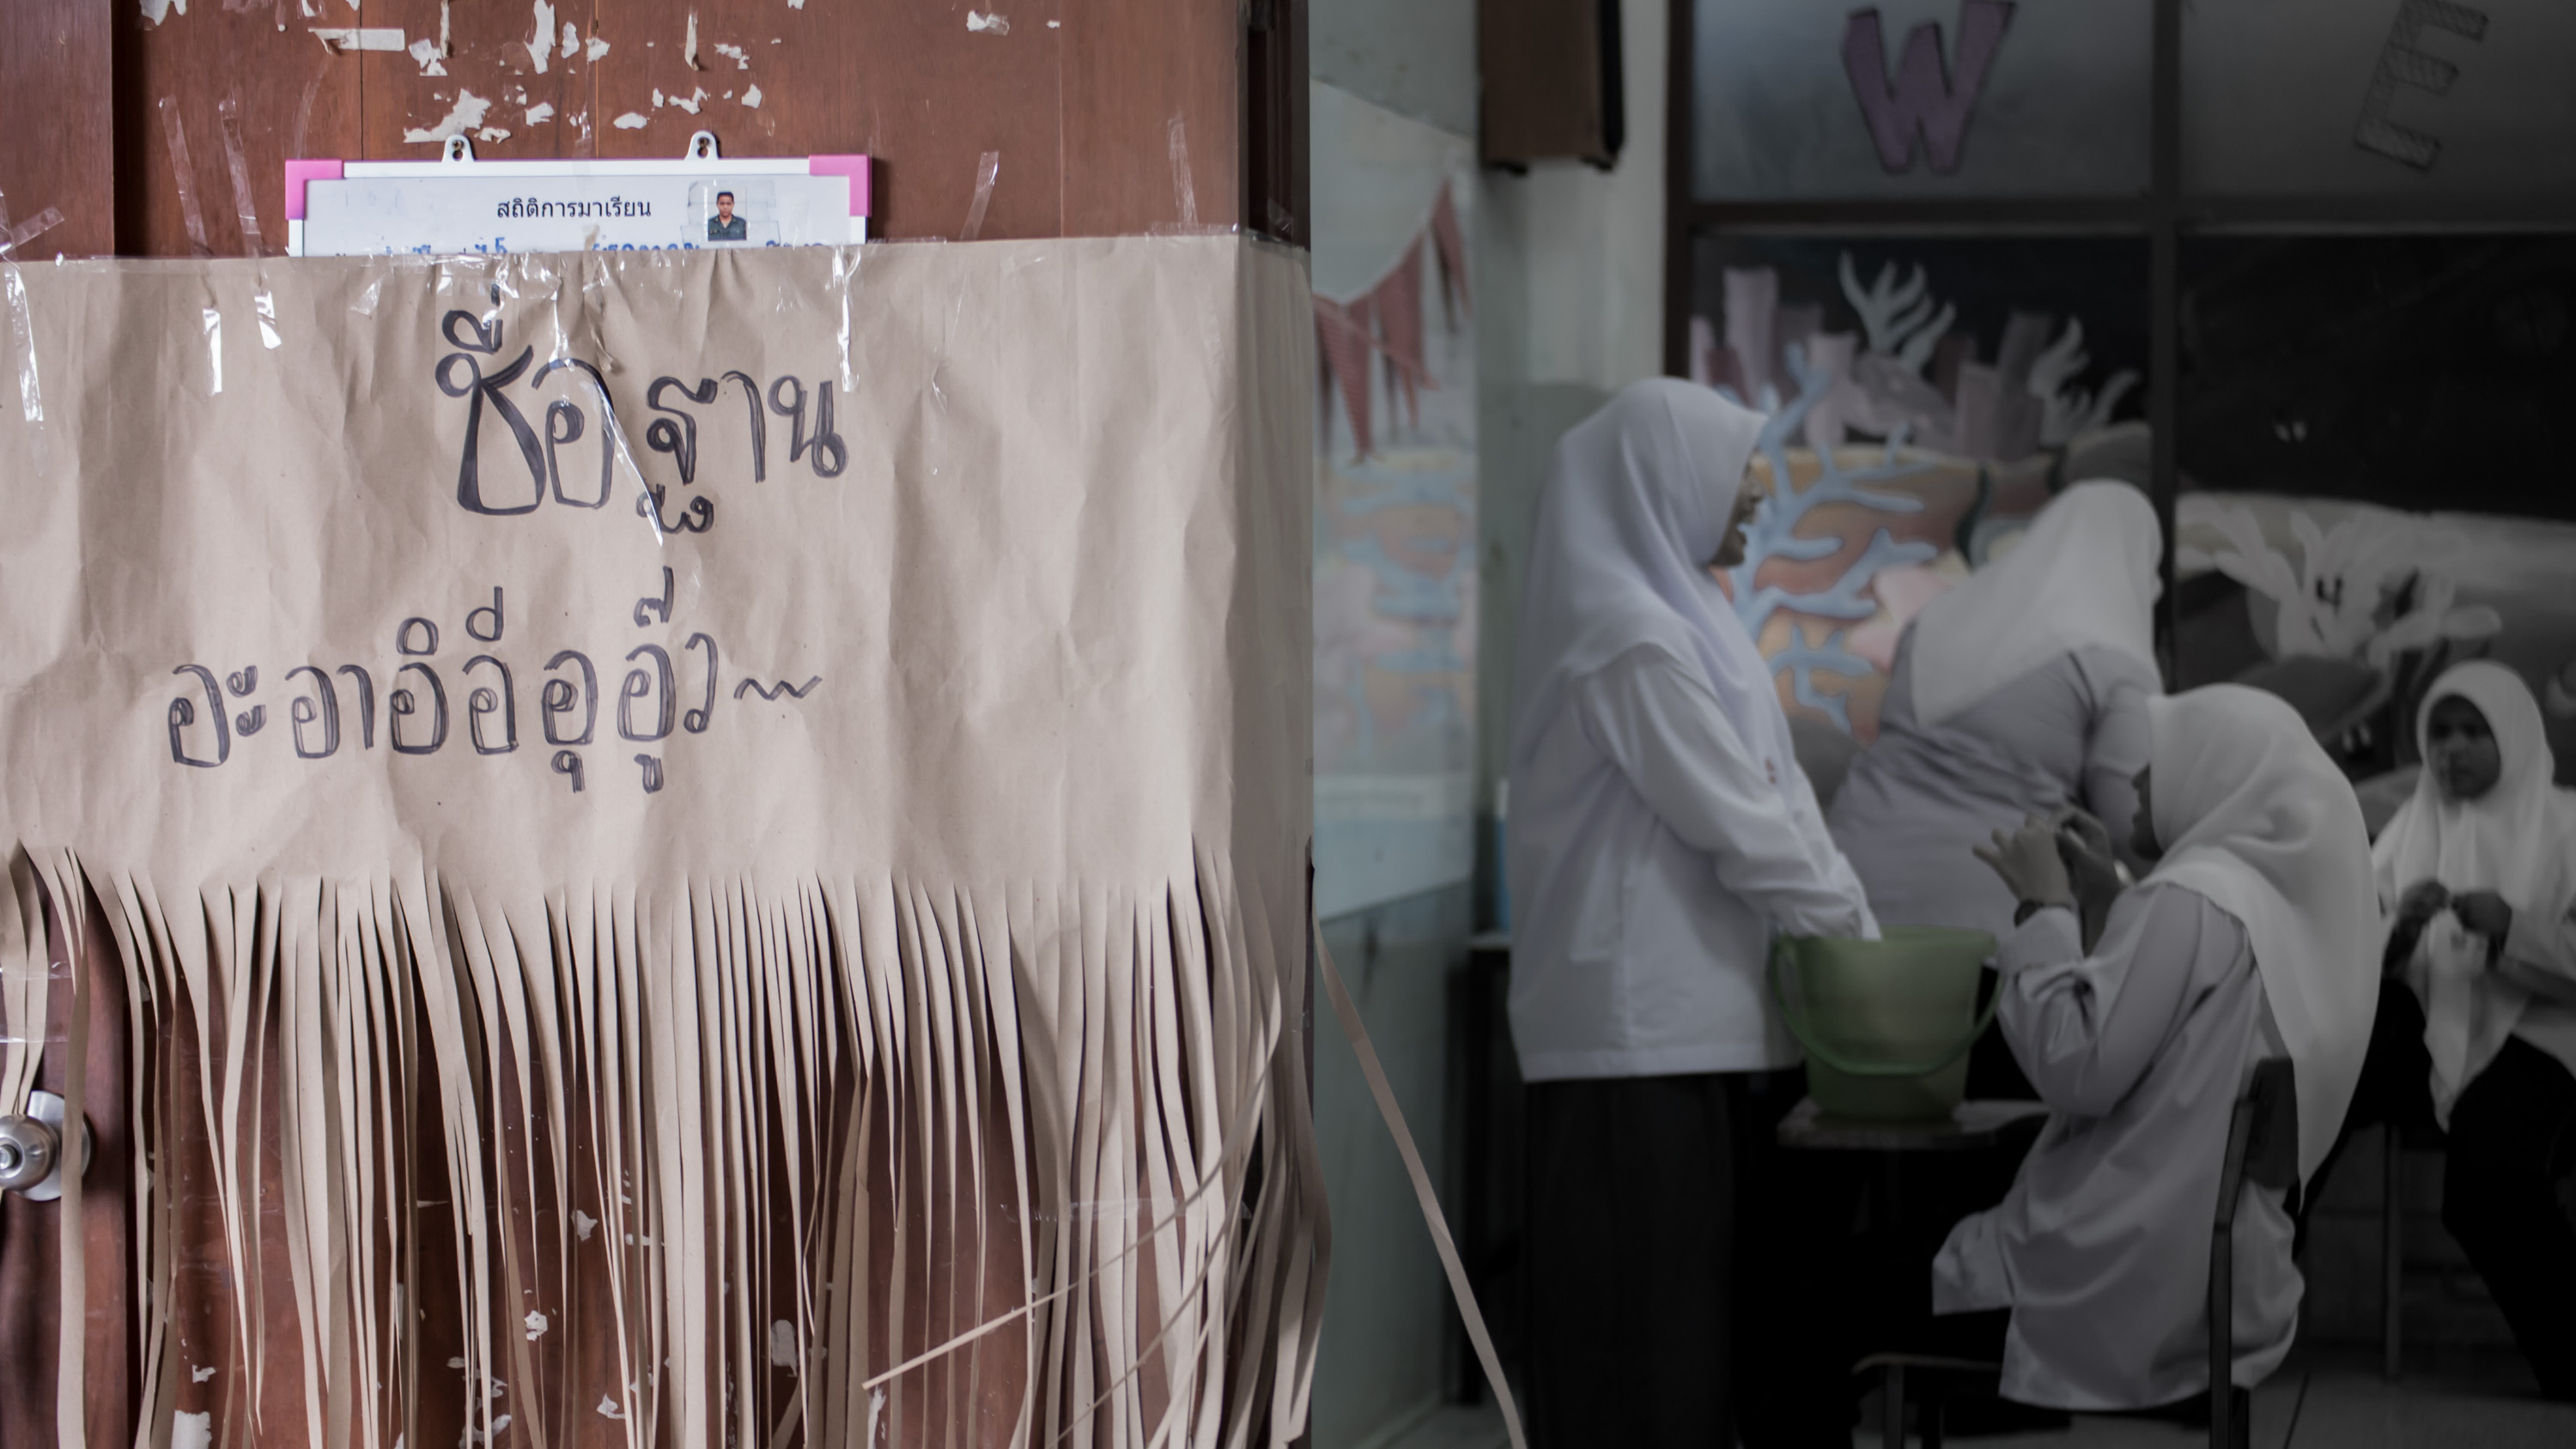 สถิติการมาเรียน
ชื่อฐาน
อะอาอิอีอุอู๊ว~
W
E